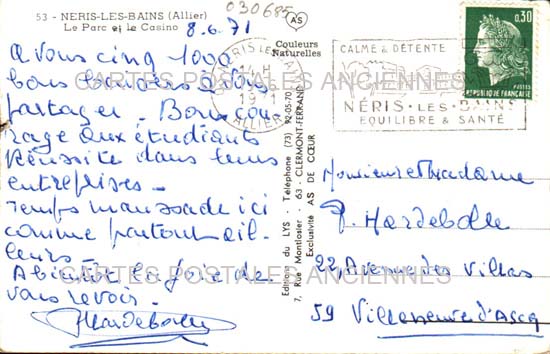 53 - NERIS-LES-BAINS (Allier)
Le Parc et le Casino
8.6.71
030685
AS
Couleurs
Naturelles
A vous cinq 1000
bons baisers à vous
partager. Bon cou-
rage aux étudiants
Réussite dans leurs
entreprises.
Temps maussade ici
comme partout ail-
leurs.
A bientôt la joie de
vous revoir.
P Hardebolle
Edition du LYS - Téléphone (73) 92-05-70
7, Rue Montlosier - 63 - CLERMONT-FERRAND
Exclusivité AS DE CŒUR
NERIS LES BAINS
ALLIER
CALME & DÉTENTE
NÉRIS-LES-BAINS
EQUILIBRE & SANTÉ
0,30
POSTES
REPUBLIQUE FRANÇAISE
Monsieur et Madame
P. Hardebolle
22, Avenue des Villas
59 Villeneuve d'Ascq
CARTES POSTALES ANCIENNES
CARTES POSTALES ANCIENNES